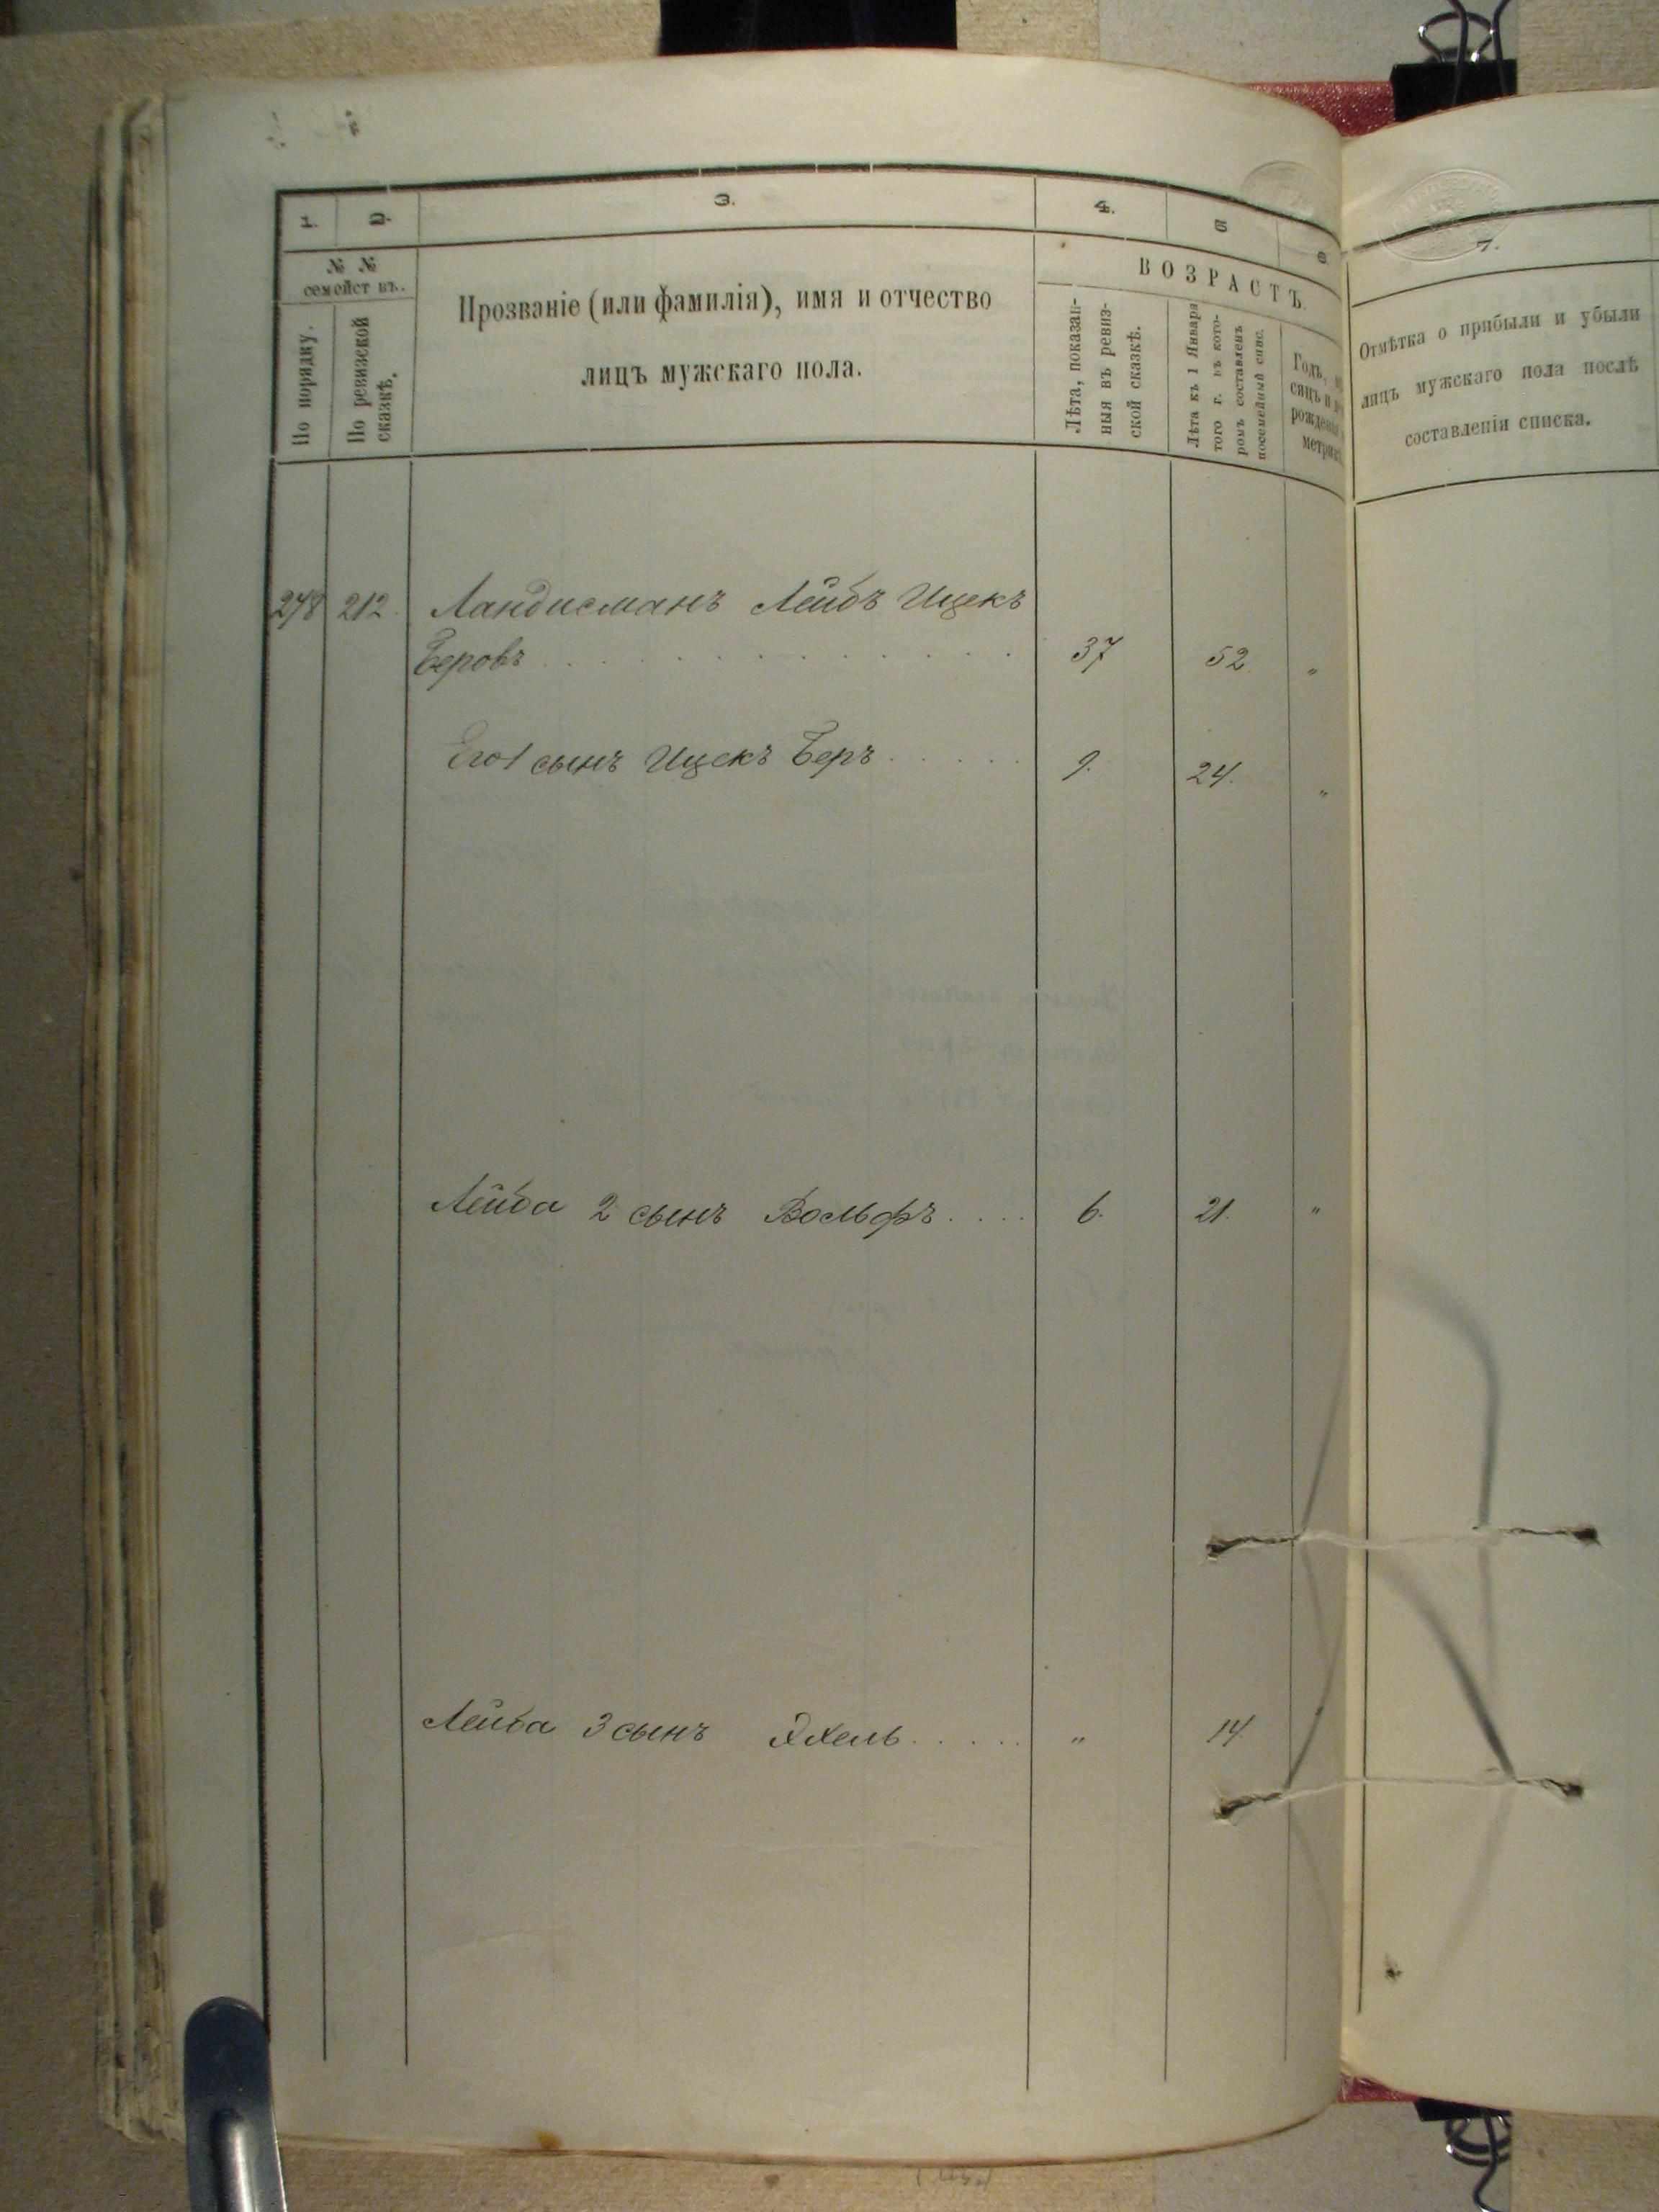 1. 2. 3. 4. 5 6 7.
№ № семействъ.
По порядку.
По ревизской сказкѣ.
Прозваніе (или фамилія), имя и отчество
лицъ мужскаго пола.
ВОЗРАСТЪ.
Лѣта, показан-
ныя въ ревиз-
ской сказкѣ.
Лѣта къ 1 Января
того г. въ кото-
ромъ составленъ
посемейный спис.
Годъ,
сяцъ и
рожденія
метрик
Отмѣтка о прибыли и убыли
лицъ мужскаго пола послѣ
составленія списка.
278 212. Ландисманъ Лейбъ Ицекъ
Беровъ 37 52. "
Его 1 сынъ Ицекъ Беръ 9. 24. "
Лейба 2 сынъ Вольфъ 6. 21. "
Лейба 3 сынъ Эхель " 14.